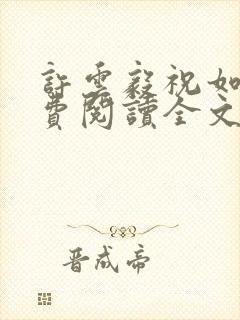 許雲毅祝如
費閱讀全文
晉成帝